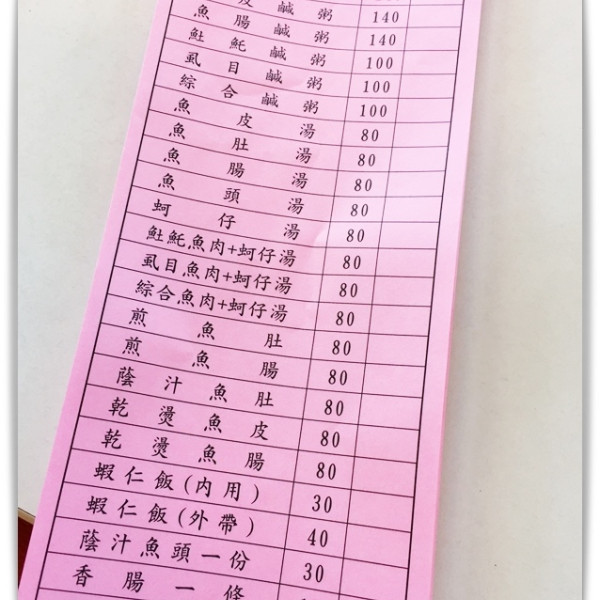 皮鹹粥 140
魚腸鹹粥 140
𩵚魠鹹粥 100
虱目鹹粥 100
綜合鹹粥 100
魚皮湯 80
魚肚湯 80
魚腸湯 80
魚頭湯 80
蚵仔湯 80
𩵚魠魚肉+蚵仔湯 80
虱目魚肉+蚵仔湯 80
綜合魚肉+蚵仔湯 80
煎魚肚 80
煎魚腸 80
蔭汁魚肚 80
乾燙魚皮 80
乾燙魚腸 80
蝦仁飯(內用) 30
蝦仁飯(外帶) 40
蔭汁魚頭一份 30
香腸一條